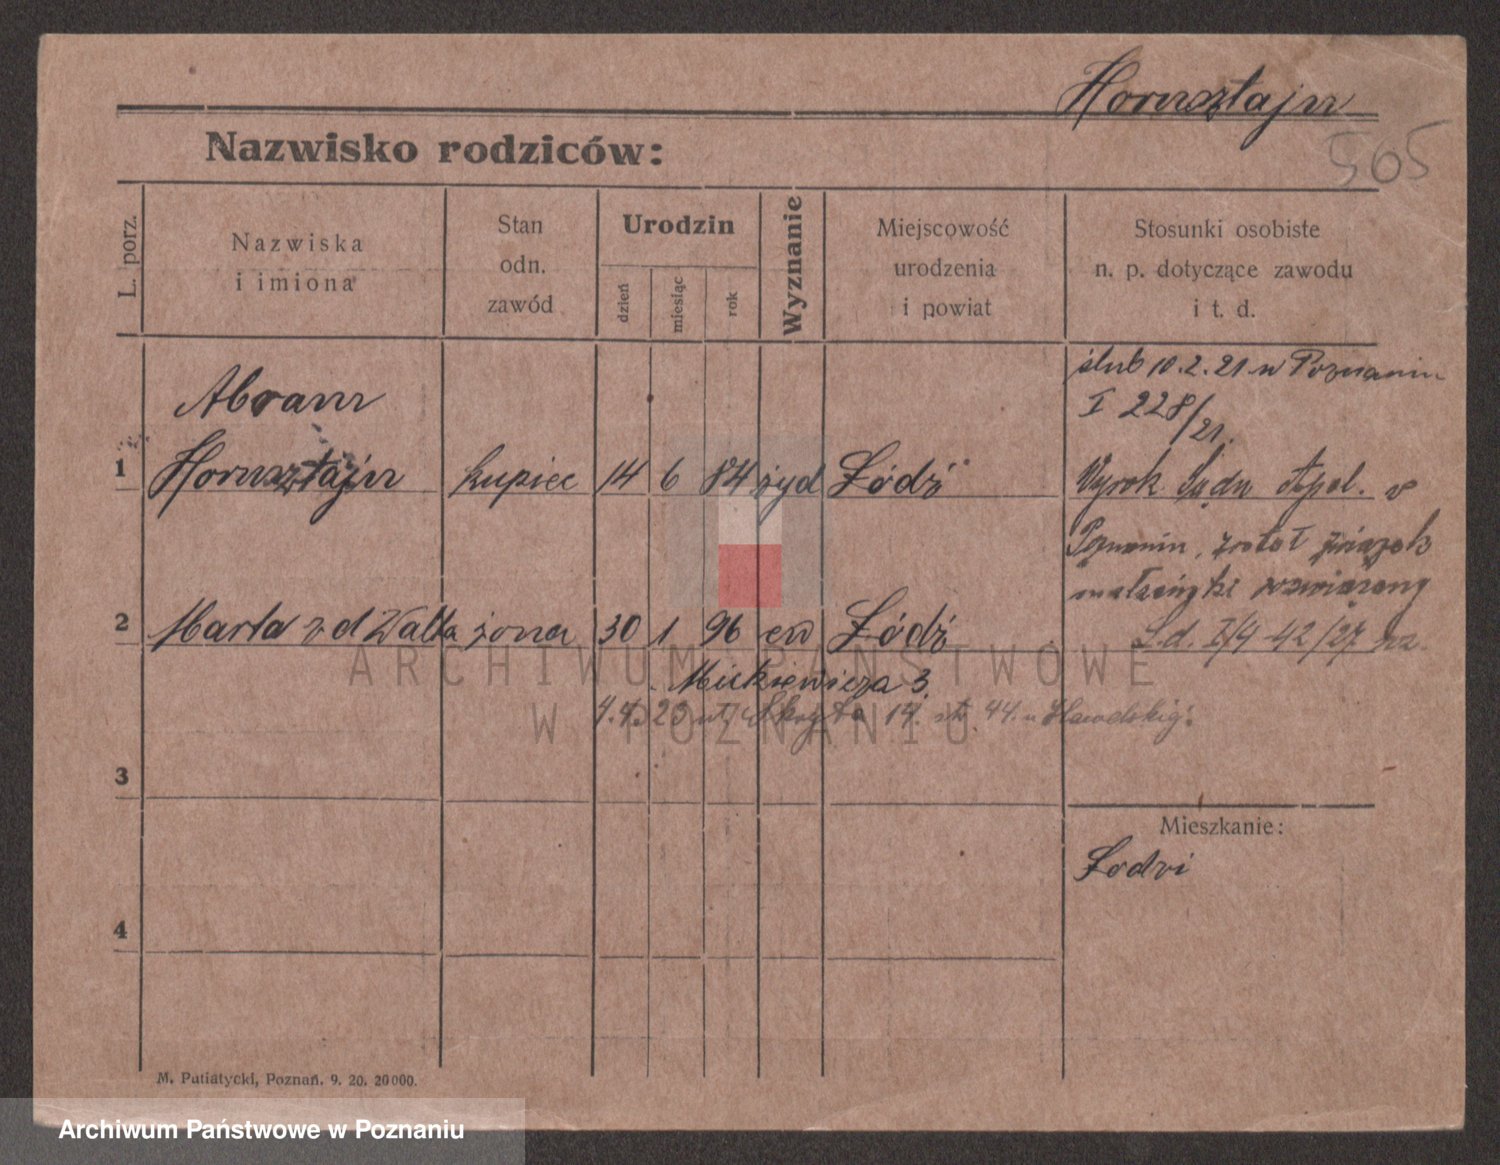 Hornsztajn
565
Nazwisko rodziców:
L. porz.
Nazwiska
i imiona
Stan
odn.
zawód
Urodzin
dzień
miesiąc
rok
Wyznanie
Miejscowość
urodzenia
i powiat
Stosunki osobiste
n. p. dotyczące zawodu
i t. d.
ślub 10.2.21 w Poznaniu
I 228/21.
Abram
1 Hornsztajn kupiec 14 6 84 żyd Łódź
Wyrok Sądu Apel. w
Poznaniu, został związek
małżeński rozwiązany
2 Marta z d Walta żona 30 1 96 ew Łódź
L.d. I/4 42/27
ARCHIWUM PAŃSTWOWE
W POZNANIU
Mickiewicza 3.
23 ul. 14. 44. u
3
Mieszkanie:
Łodzi
4
M. Putiatycki, Poznań. 9. 20. 20000.
Archiwum Państwowe w Poznaniu